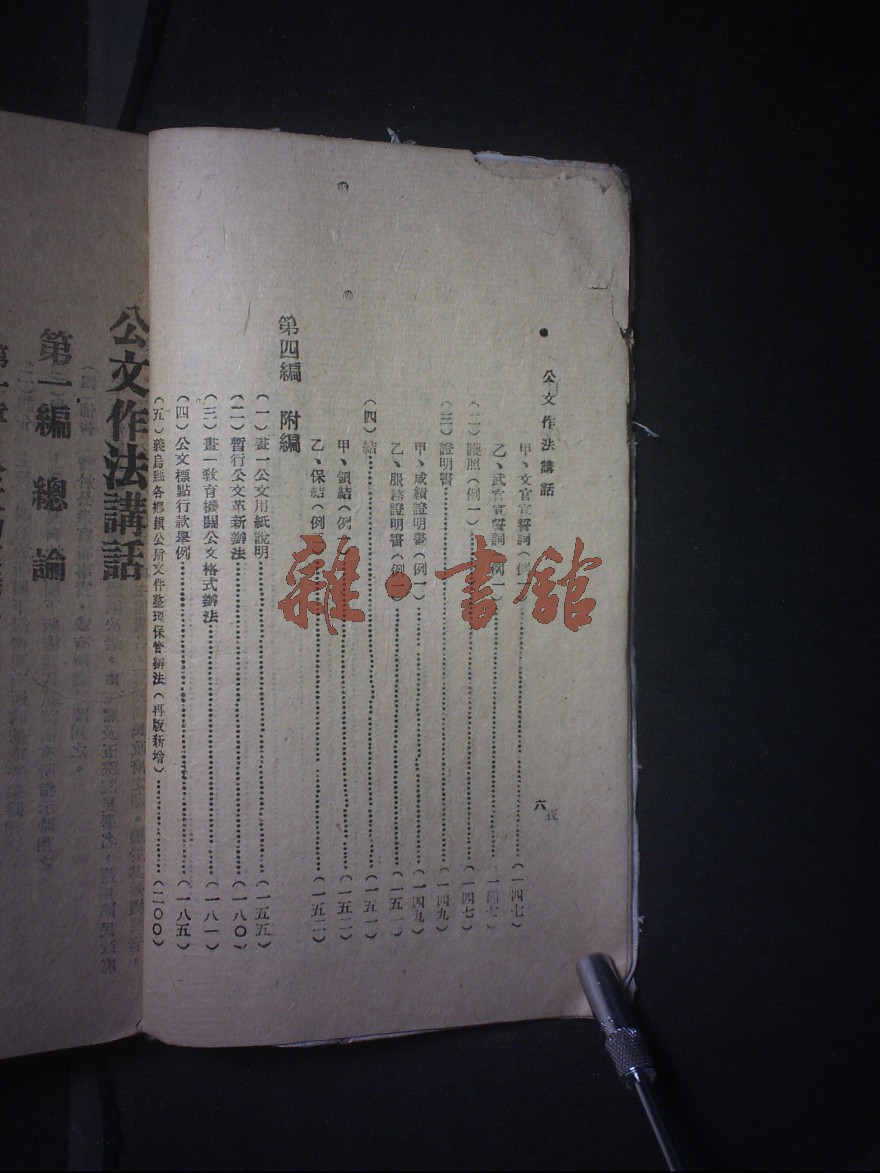 公文作法講話
六
甲、文官宣誓詞（例一）（一四七）
乙、武官宣誓詞（例一）（一四七）
（二）護照（例一）（一四七）
（三）證明書（一四九）
甲、成績證明書（例一）（一四九）
乙、服務證明書（例一）（一五一）
（四）結（一五一）
甲、領結（例一）（一五二）
乙、保結（例一）（一五二）
第四編 附編
（一）畫一公文用紙說明（一五五）
（二）暫行公文革新辦法（一八〇）
（三）畫一教育機關公文格式辦法（一八一）
（四）公文標點行款舉例（一八五）
（五）義烏縣各鄉鎮公所文件整理保管辦法（再版新增）（二〇〇）
公文作法講話
第一編 總論
第一章
雜·書館